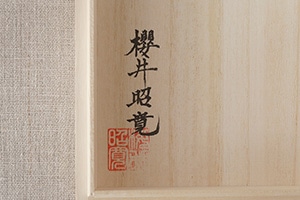 櫻井昭寛